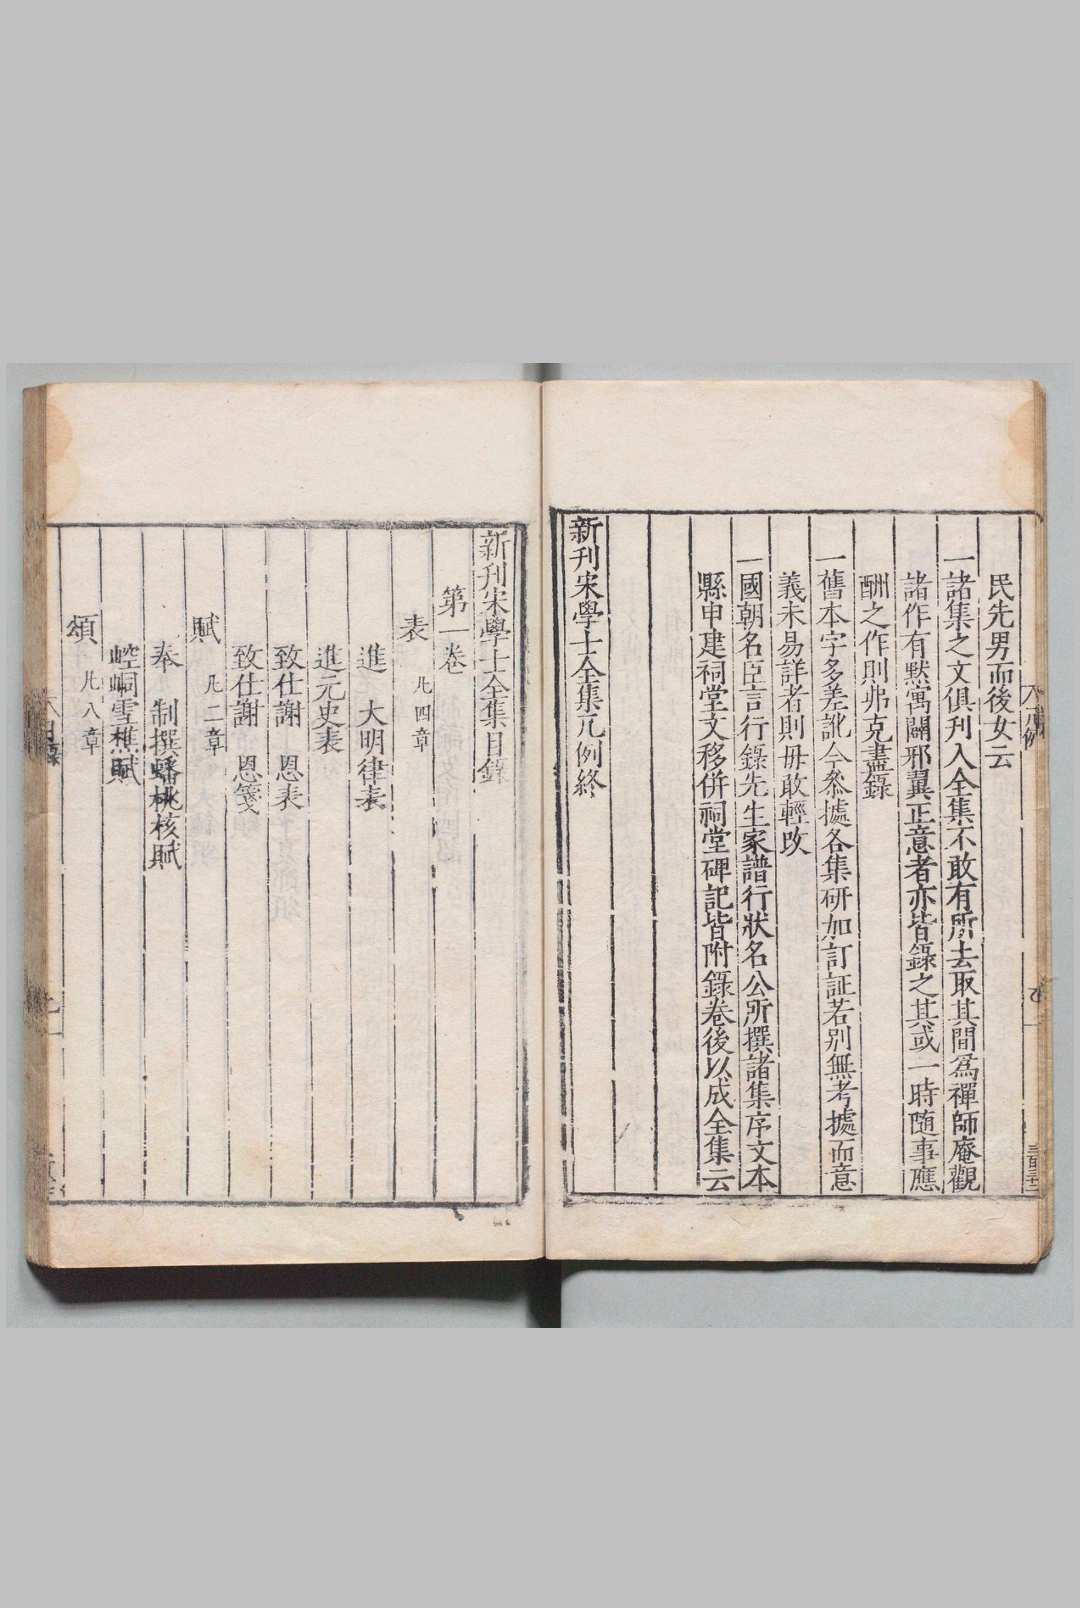 民先男而後女云
一諸集之文俱刊入全集不敢有所去取其間爲禪師庵觀
諸作有默寓闢邪翼正意者亦皆錄之其或一時随事應
酬之作則弗克盡錄
一舊本字多差訛今叅㨿各集研加訂証若别無考㨿而意
義未易詳者則毋敢輕改
一國朝名臣言行錄先生家譜行狀名公所撰諸集序文本
縣申建祠堂文移併祠堂碑記皆附錄卷後以成全集云
新刊宋學士全集凡例終
新刊宋學士全集目錄
第一卷
表 凡四章
進 大明律表
進元史表
致仕謝 恩表
致仕謝 恩箋
賦 凡二章
奉 制撰蟠桃核賦
崆峒雪樵賦
頌 凡八章
目錄